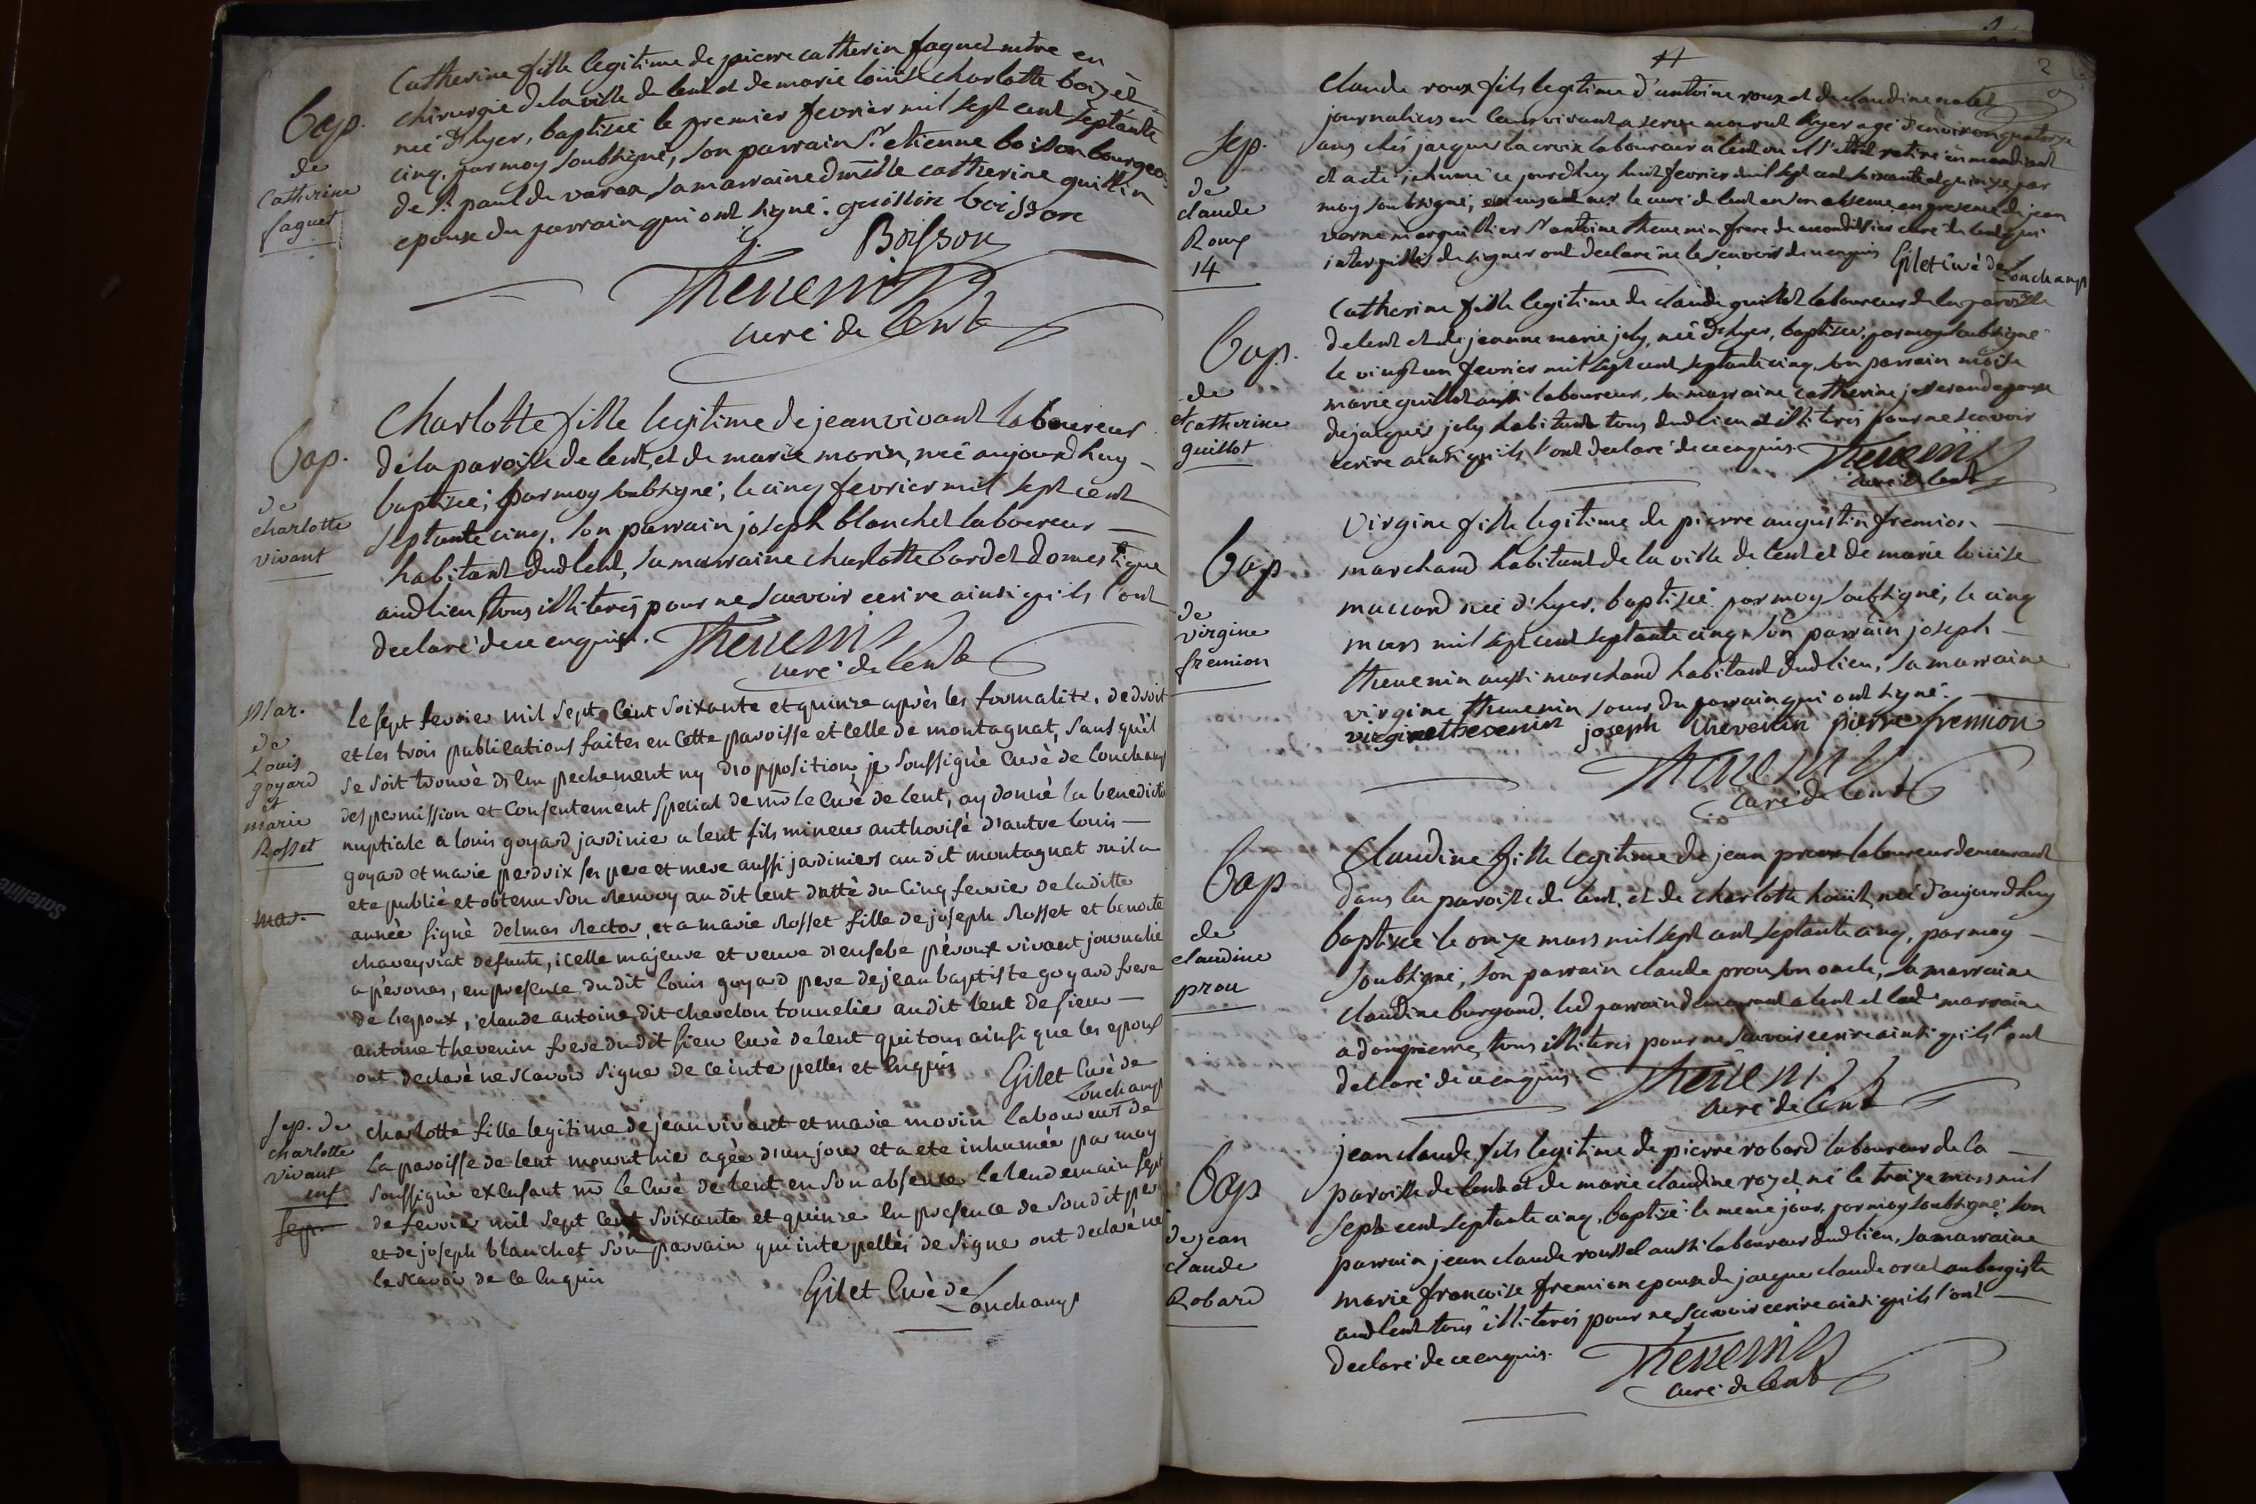 Bap.
de
Catherine
faguet
Catherine fille legitime de pierre catherin faguet mtre en
chirurgie de la ville de lent et de marie loüise charlotte
née d'hyer, baptisée le premier fevrier mil sept cent septante
cinq, par moy soubsigné, son parrain Sr. etienne boisson bourgeois
de St. paul de varax sa marraine dmslle catherine guillin
epouse du parrain qui ont signé. guillin boisson
Boisson
Thevenin
curé de lent
Bap.
de
charlotte
vivant
Charlotte fille legitime de jean vivant laboureur
de la paroisse de lent, et de marie morin, née aujourdhuy
baptisée, par moy soubsigné, le cinq fevrier mil sept cent
septante cinq, son parrain joseph blanchet laboureur
habitant dud lent, sa marraine charlotte bardet domestique
aud lieu tous illiterés pour ne scavoir ecrire ainsi qu'ils l'ont
declaré de ce enquis. Thevenin
curé de lent
Mar.
de
Louis
goyard
et
marie
Rosset
le sept fevrier mil sept cent soixante et quinze après les formalités de droit
et les trois publications faites en cette paroisse et celle de montagnat, sans qu'il
se soit trouvé d'empechement ny d'opposition, je soussigné curé de Lonchamp
des permission et consentement special de mr le curé de lent, ay donné la benediction
nuptiale a louis goyard jardinier a lent fils mineur authorisé d'autre louis
goyard et marie perdrix ses pere et mere aussi jardiniers au dit montagnat ou il a
eté publié et obtenu son renvoy au dit lent datté du cinq fevrier de la ditte
année signé delmas Rector, et a marie Rosset fille de joseph Rosset et benoite
chaveyriat defunte, icelle majeure et veuve d'eusebe péroux vivant journalier
a péronas, en presence du dit louis goyard pere de jean baptiste goyard frere
de l'epoux, claude antoine dit chevelon tonnelier au dit lent de sieur
antoine thevenin frere du dit sieur curé de lent qui tous ainsi que les epoux
ont declaré ne scavoir signer de ce interpellés et enquis
Gilet Curé de
Lonchamp
Sep. de
charlotte
vivant
enf
charlotte fille legitime de jean vivant et marie morin laboureurs de
la paroisse de lent mourut hier agée d'un jour et a eté inhumée par moy
soussigné excusant mr le curé de lent en son absence le lendemain sept
de fevrier mil sept cent soixante et quinze en presence de son dit pere
et de joseph blanchet son parrain qui interpellés de signer ont declaré ne
le scavoir de ce enquis
Gilet Curé de
Lonchamp
2
Sep.
de
claude
Roux
14
Claude roux fils legitime d'antoine roux et de claudine
journaliers en leur vivant a mourut hyer agé d'environ quatorze
ans chés jacques la croix laboureur a lent ou il s'etoit retiré en mendiant
et a eté inhumé ce jourdhuy huit fevrier mil sept cent soixante et quinze par
moy soubsigné, excusant mr le curé de lent en son absence en presence de jean
verne marguillier Sr antoine thevenin frere de curé de lent qui
interpellés de signer ont declaré ne le scavoir de ce enquis Gilet Curé de
Lonchamp
Bap.
de
Catherine
guillot
Catherine fille legitime de claude guillot laboureur de la paroisse
de lent et de jeanne marie joly, née d'hyer, baptisée par moy soubsigné
le vingt un fevrier mil sept cent septante cinq, son parrain
marie guillot aussi laboureur, sa marraine catherine josserand epouse
de jacques joly habitants tous dud lieu et illiterés pour ne scavoir
ecrire ainsi qu'ils l'ont declaré de ce enquis. Thevenin
curé de lent
Bap
de
virgine
fremion
Virgine fille legitime de pierre augustin fremion
marchand habitant de la ville de lent et de marie loüise
maccard née d'hyer, baptisée par moy soubsigné, le cinq
mars mil sept cent septante cinq, son parrain joseph
thevenin aussi marchand habitant dud lieu, sa marraine
virgine thevenin soeur du parrain qui ont signé.
virgine thevenin joseph thevenin pierre fremion
Thevenin
curé de lent
Bap
de
claudine
prou
Claudine fille legitime de jean prou laboureur demeurant
dans la paroisse de lent, et de charlotte née d'aujourdhuy
baptisée le onze mars mil sept cent septante cinq, par moy
soubsigné, son parrain claude prou son oncle, sa marraine
claudine burgand, led parrain demeurant a lent et lad marraine
a dompierre, tous illiterés pour ne scavoir ecrire ainsi qu'ils l'ont
declaré de ce enquis. Thevenin
curé de lent
Bap
de jean
claude
Robard
jean claude fils legitime de pierre robard laboureur de la
paroisse de lent et de marie claudine royet né le treize mars mil
sept cent septante cinq, baptisé le meme jour, par moy soubsigné, son
parrain jean claude roussel aussi laboureur dud lieu, sa marraine
marie francoise fremion epouse de jacque claude orcel aubergiste
aud lent tous illiterés pour ne scavoir ecrire ainsi qu'ils l'ont
declaré de ce enquis. Thevenin
curé de lent